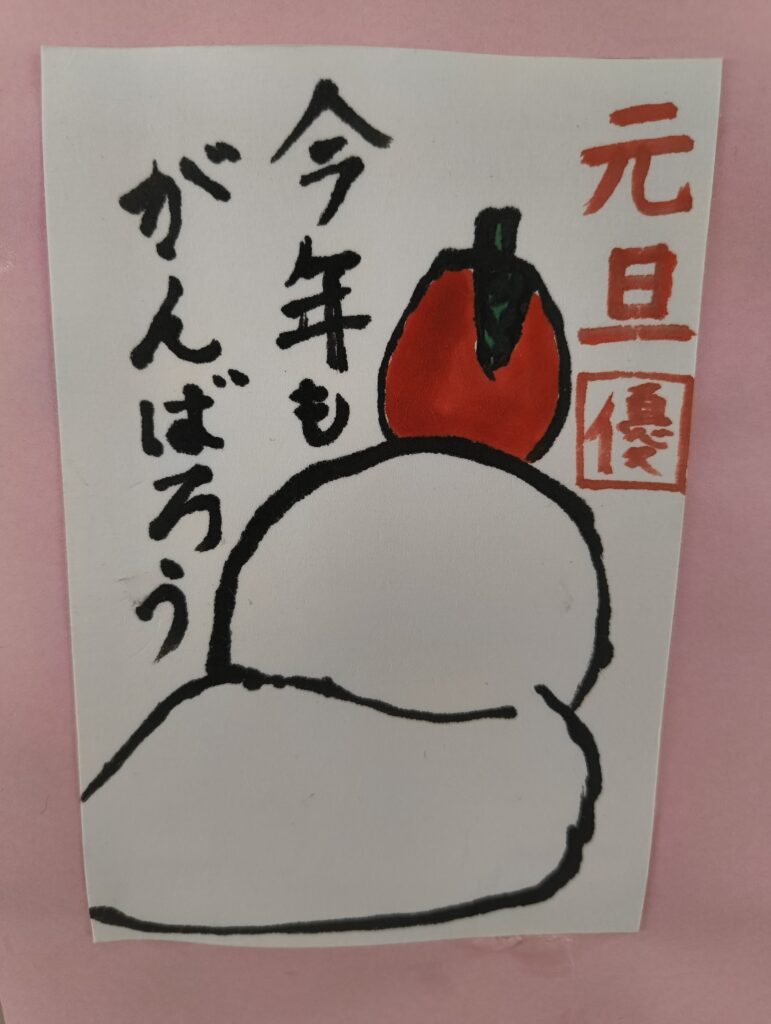 元旦
優
今年も
がんばろう